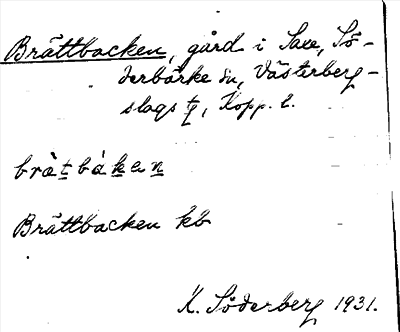 Brättbacken, gård i Saxe, Sö-
derbärke sn, Västerberg-
slags tg, Kopp. l.
bràtbáken
Brättbacken kb
K. Söderberg 1931.